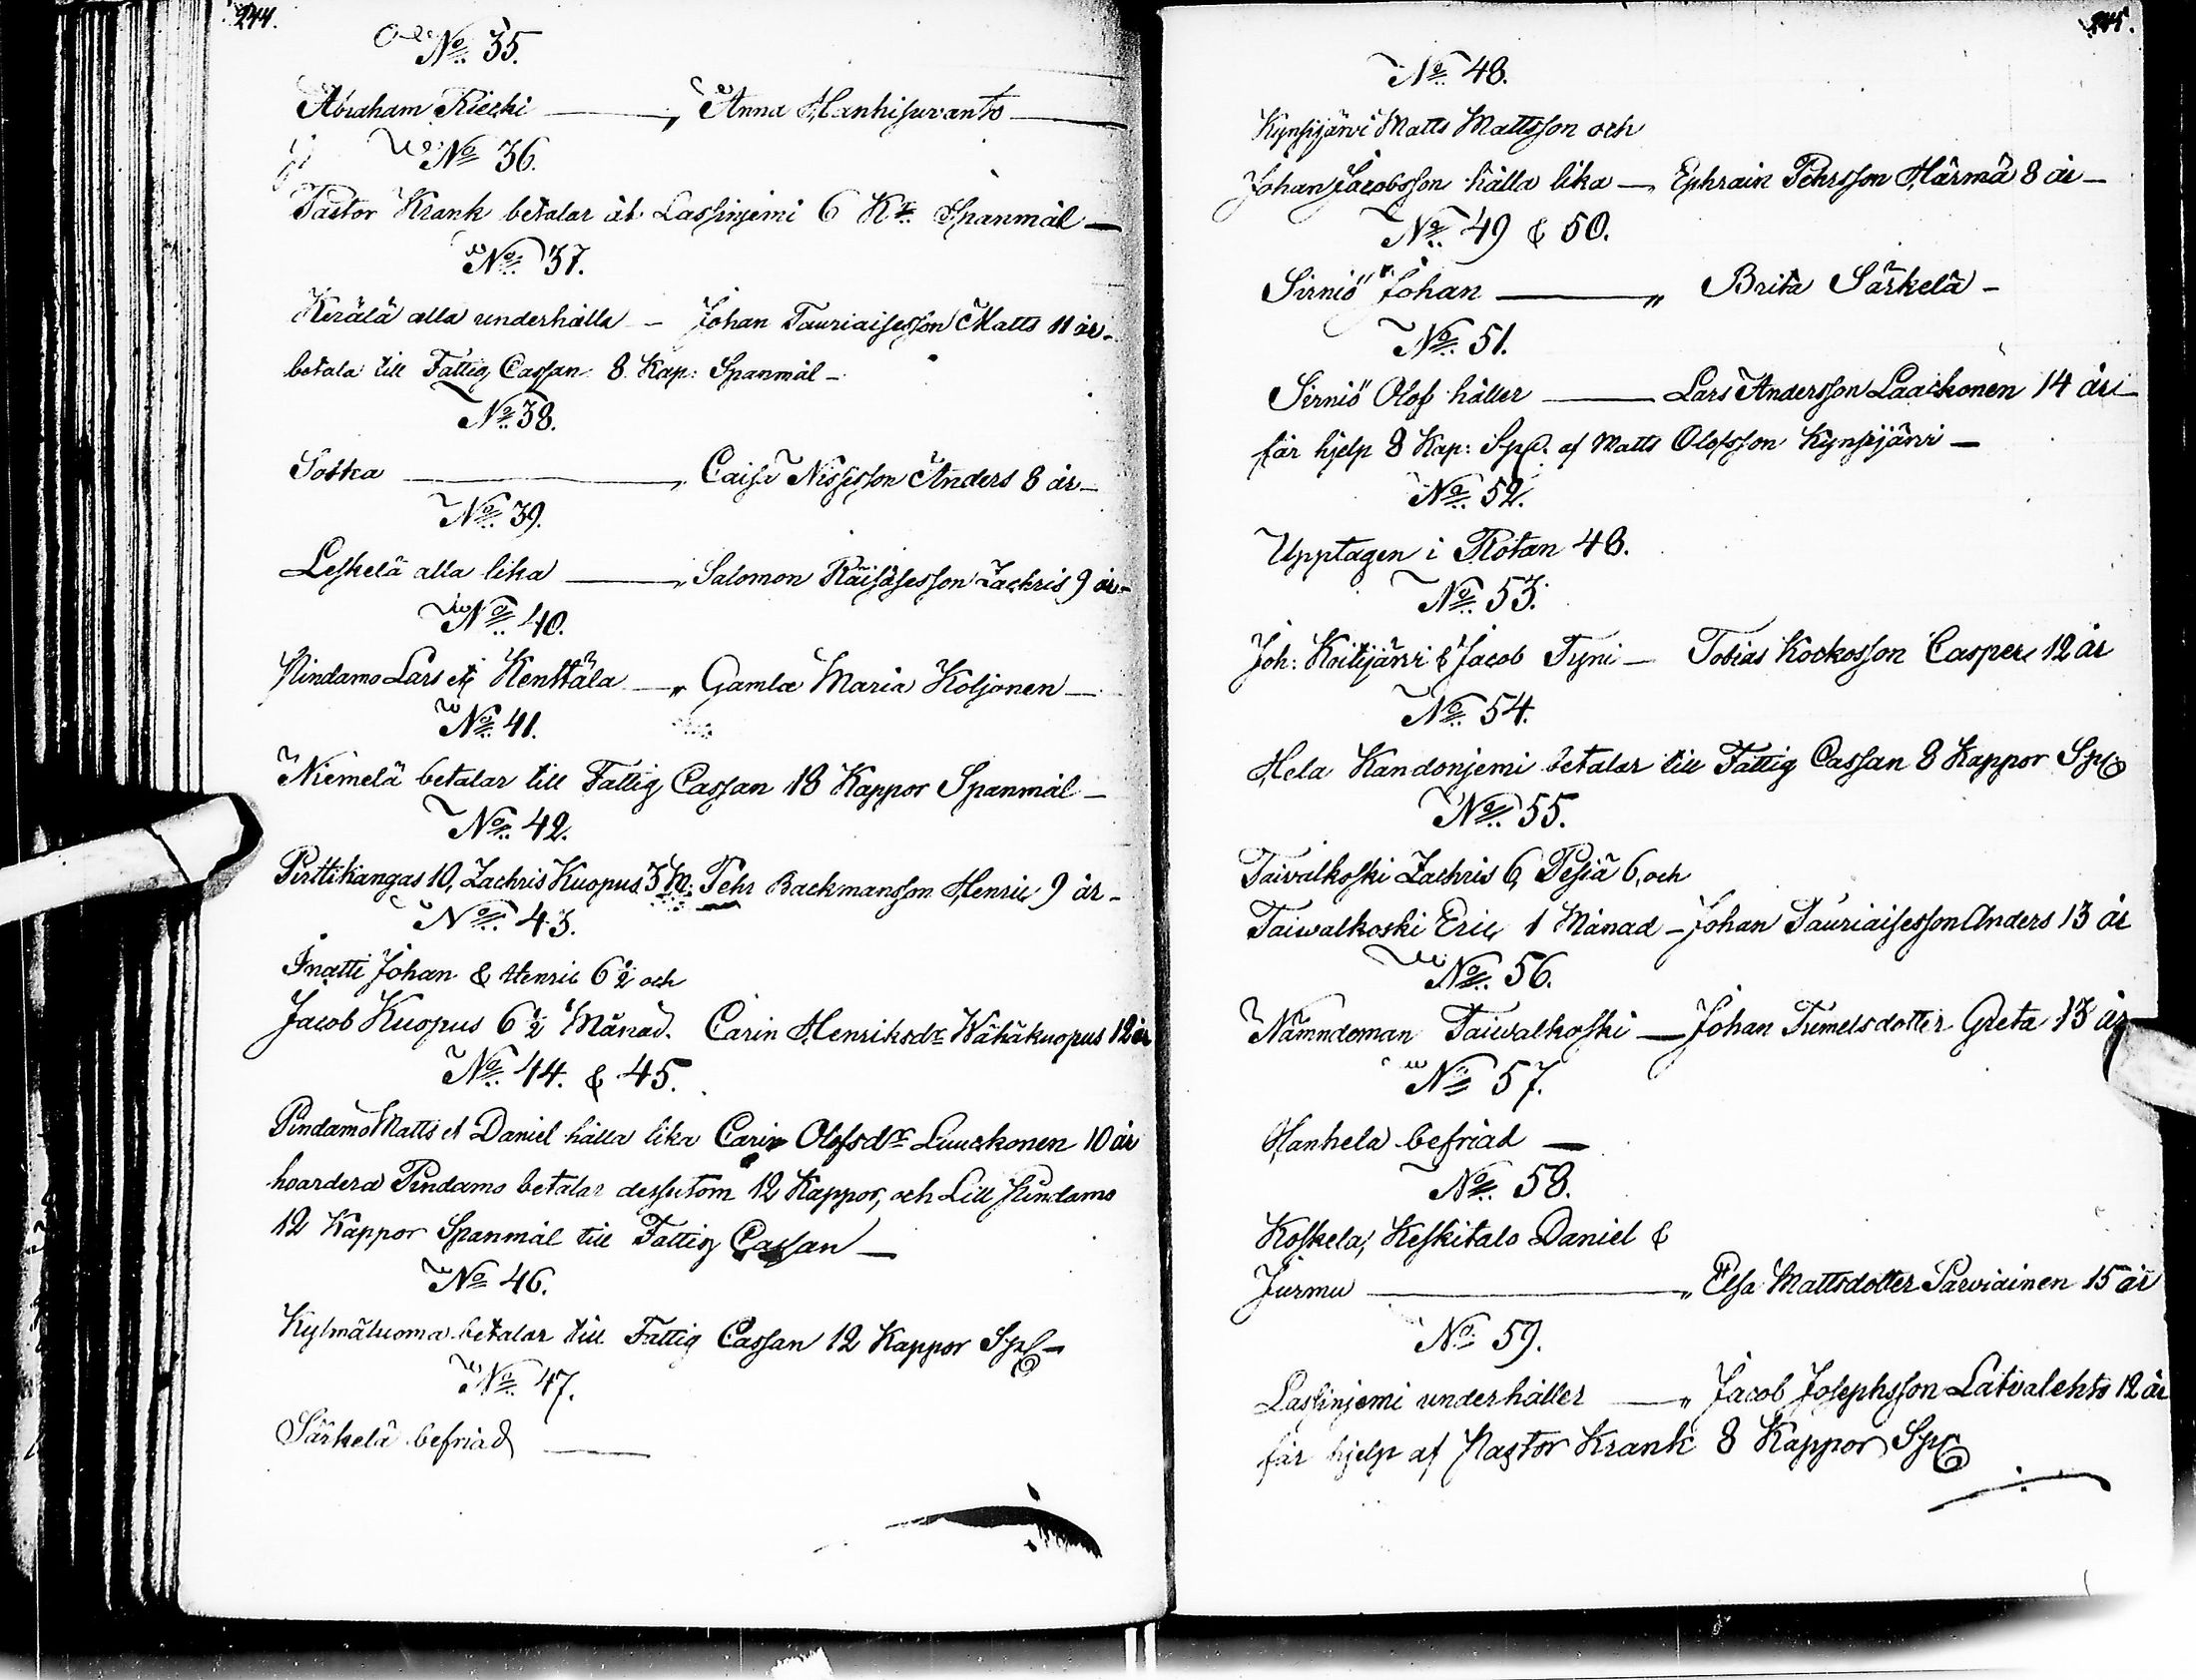 244.
No 35.
Abraham Riecki — „ Anna Hanhisuvanto —
No 36.
Pastor Krank betalar åt Lassinjemi 6 Kr. Spanmål —
No 37.
Kerälä alla underhålla — Johan Tauriaisesson Matts 11 år —
betala till Fattig Cassan 8 Kap: Spanmål —
No 38.
Sotka — „ Caisa Nissesson Anders 8 år —
No 39.
Leskelä alla lika — „ Salomon Räisäsesson Zachris 9 år —
No 40.
Rindamo Lars et Kenttälä — „ Gamla Maria Koljonen —
No 41.
Niemelä betalar till Fattig Cassan 18 Kappor Spanmål —
No 42.
Pirttikangas 10, Zachris Kuopus 3 M: Pehr Backmansson Henric 9 år —
No 43.
Inatti Johan & Henric 6½ och
Jacob Kuopus 6½ Månad. Carin Henriksdr Wähäkuopus 12 år
No 44. & 45.
Pindamo Matts et Daniel hålla lika Carin Olofsdr Luuckonen 10 år
hvardera Pindamo betalar dessutom 12 Kappor, och Lill Pindamo
12 Kappor Spanmål till Fattig Cassan —
No 46.
Kylmäluoma betalar till Fattig Cassan 12 Kappor Spl —
No 47.
Särkelä befriad —
245.
No 48.
Kynsijärvi Matts Mattsson och
Johan Jacobsson hålla lika — „ Ephraim Pehrsson Härmä 8 år —
No 49 & 50.
Sirniö Johan — „ Brita Särkelä —
No 51.
Sirniö Olof håller — Lars Andersson Laackonen 14 år —
får hjelp 8 Kap: Spl. af Matts Olofsson Kynsijärvi —
No 52.
Upptagen i Rotan 48.
No 53.
Joh: Koitijärvi & Jacob Tyni — Tobias Kockosson Casper 12 år
No 54.
Hela Kandonjemi betalar till Fattig Cassan 8 Kappor Spl
No 55.
Taivalkoski Zachris 6, Pesiä 6, och
Taiwalkoski Eric 1 Månad — Johan Tauriaisesson Anders 13 år
No 56.
Nämndeman Taiwalkoski — Johan Tumelsdotter Greta 13 år
No 57.
Hanhela befriad —
No 58.
Koskela, Keskitalo Daniel &
Jurmu — „ Elsa Mattsdotter Parviainen 15 år
No 59.
Lassinjemi underhåller — „ Jacob Josephsson Latvalehto 12 år
får hjelp af Pastor Krank 8 Kappor Spl